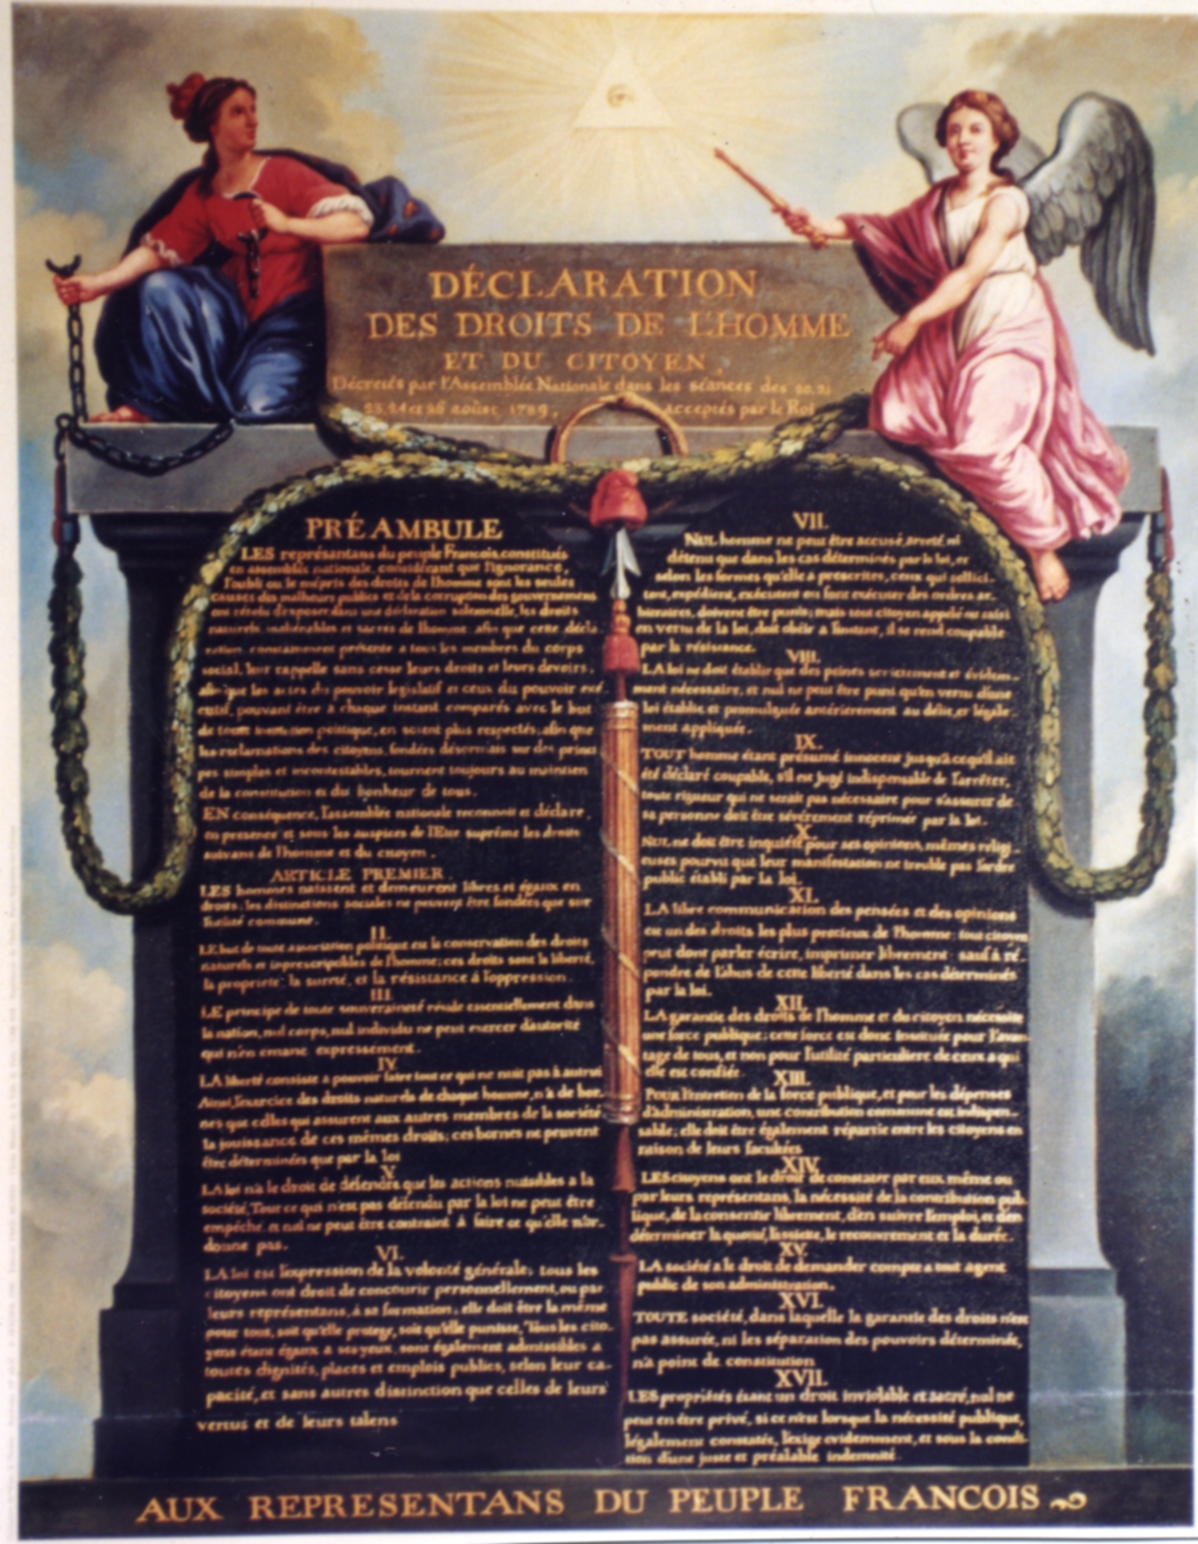 DÉCLARATION
DES DROITS DE L'HOMME
ET DU CITOYEN,
Décretés par l'Assemblée Nationale dans les séances des 20. 21
23. 24 et 26 août 1789, acceptés par le Roi
PRÉAMBULE
LES représentans du peuple François constitués
en assemblée nationale, considérant que l'ignorance,
l'oubli ou le mépris des droits de l'homme sont les seules
causes des malheurs publics et de la corruption des gouvernemens
ont résolu d'exposer dans une déclaration solemnelle, les droits
naturels inaliénables et sacrés de l'homme afin que cette décla
ration constamment présente a tous les membres du corps
social, leur rappelle sans cesse leurs droits et leurs devoirs,
afin que les actes du pouvoir législatif et ceux du pouvoir exé
cutif, pouvant être à chaque instant comparés avec le but
de toute institution politique, en soient plus respectés, afin que
les réclamations des citoyens, fondées désormais sur des princi
pes simples et incontestables, tournent toujours au maintien
de la constitution et du bonheur de tous.
EN conséquence, l'assemblée nationale reconnoit et déclare,
en presence et sous les auspices de l'Etre suprême les droits
suivans de l'homme et du citoyen.
ARTICLE PREMIER.
LES hommes naissent et demeurent libres et égaux en
droits. les distinctions sociales ne peuvent être fondées que sur
l'utilité commune.
II.
LE but de toute association politique est la conservation des droits
naturels et imprescriptibles de l'homme; ces droits sont la liberté,
la propriété, la sureté, et la résistance à l'oppression.
III.
LE principe de toute souveraineté réside essentiellement dans
la nation, nul corps, nul individu ne peut exercer d'autorité
qui n'en emane expressement.
IV.
LA liberté consiste a pouvoir faire tout ce qui ne nuit pas à autrui
Ainsi, l'exercice des droits naturels de chaque homme, n'a de bor-
nes que celles qui assurent aux autres membres de la société
la jouissance de ces mêmes droits; ces bornes ne peuvent
être déterminées que par la loi
V.
LA loi n'a le droit de défendre que les actions nuisibles a la
société. Tout ce qui n'est pas défendu par la loi ne peut être
empêché, et nul ne peut être contraint à faire ce qu'elle n'or-
donne pas.
VI.
LA loi est l'expression de la volonté générale; tous les
citoyens ont droit de concourir personnellement, ou par
leurs représentans, à sa formation; elle doit être la même
pour tous, soit qu'elle protege, soit qu'elle punisse, Tous les cito-
yens étant égaux a ses yeux, sont également admissibles a
toutes dignités, places et emplois publics, selon leur ca-
pacité, et sans autres distinction que celles de leurs
vertus et de leurs talens.
VII.
NUL homme ne peut être accusé, arreté, ni
détenu que dans les cas déterminés par la loi, et
selon les formes qu'elle a prescrites, ceux qui sollici-
tent, expédient, exécutent ou font exécuter des ordres ar-
bitraires, doivent être punis; mais tout citoyen appelé ou saisi
en vertu de la loi, doit obéir a l'instant, il se rend coupable
par la résistance.
VIII.
LA loi ne doit établir que des peines strictement et évidem-
ment nécessaire, et nul ne peut être puni qu'en vertu d'une
loi établie et promulguée antérierement au délit, et légale-
ment appliquée.
IX.
TOUT homme étant présumé innocent jusqu'à ce qu'il ait
été déclaré coupable, s'il est jugé indispensable de l'arrêter,
toute rigueur qui ne serait pas nécessaire pour s'assurer de
sa personne doit être sévèrement réprimée par la loi.
X.
NUL ne doit être inquiété pour ses opinions, mêmes religi-
euses pourvu que leur manifestation ne trouble pas l'ordre
public établi par la loi.
XI.
LA libre communication des pensées et des opinions
est un des droits les plus precieux de l'homme: tout citoyen
peut dont parler écrire, imprimer librement: sauf à ré-
pondre de l'abus de cette liberté dans les cas déterminés
par la loi.
XII.
LA garantie des droits de l'homme et du citoyen nécessite
une force publique: cette force est donc instituée pour l'avan-
tage de tous, et non pour l'utilité particuliere de ceux a qui
elle est confiée.
XIII.
POUR l'entretien de la force publique, et pour les dépenses
d'administration, une contribution commune est indispen-
sable; elle doit être également répartie entre les citoyens en
raison de leurs facultées.
XIV.
LES citoyens ont le droit de constater par eux même ou
par leurs représentans, la nécessité de la contribution pub-
lique, de la consentir librement, d'en suivre l'emploi, et d'en
déterminer la quotité, l'assiette, le recouvrement et la durée.
XV.
LA société a le droit de demander compte a tout agent
public de son administration.
XVI.
TOUTE société, dans laquelle la garantie des droits n'est
pas assurée, ni les séparation des pouvoirs déterminée,
n'a point de constitution.
XVII.
LES propriétés étant un droit inviolable et sacré, nul ne
peut en être privé, si ce n'est lorsque la nécessité publique,
légalement constatée, l'exige evidemment, et sous la condi-
tion d'une juste et préalable indemnité.
AUX REPRESENTANS DU PEUPLE FRANCOIS